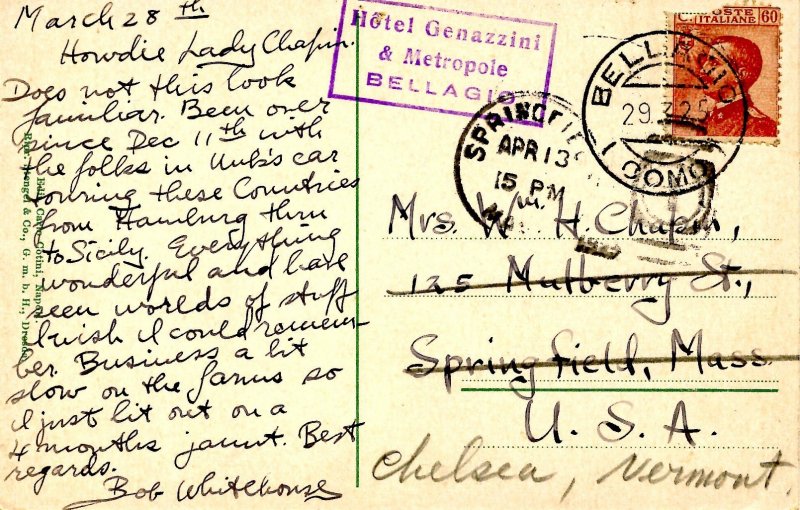 March 28th
Howdie Lady Chapin.
Does not this look
familiar. Been over
since Dec 11th with
the folks in Unk's car
touring these Countries
from Hamburg thru
to Sicily. Everything
wonderful and have
seen worlds of stuff
I wish I could remem-
ber. Business a bit
slow on the farms so
I just lit out on a
4 months jaunt. Best
regards.
Bob Whitehouse
Hôtel Genazzini
& Metropole
BELLAGIO
POSTE
ITALIANE 60
BELLAGIO
29.3.25
(COMO)
SPRINGFIE
APR 13
15 PM
MA
Mrs. Wm. H. Chapin,
125 Mulberry St.,
Springfield, Mass
U. S. A.
Chelsea, Vermont.
Napoli.
& Co., G. m. b. H., Dresden